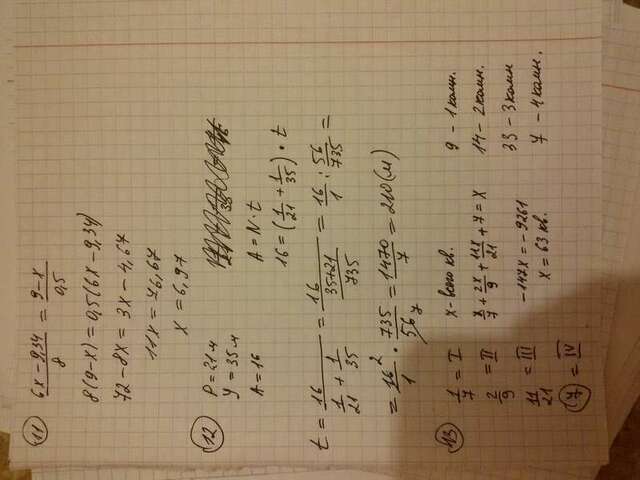 11 (6x-9,34)/8 = (9-x)/0,5
8(9-x)=0,5(6x-9,34)
72-8x=3x-4,67
11x=76,67
x=6,97
12 P=21ч
У=35ч
A=16
A=N·t
16=(1/21+1/35)·t
t=16/(1/21+1/35)=16/((35+21)/735)=16/1:56/735=
=16²/1·735/56 7=1470/7=210(ч)
13 1/7=I
2/9=II
11/21=III
7=IV
x-всего кв.
x/7+2x/9+11x/21+7=x
-147x=-9261
x=63 кв.
9-1комн.
14-2комн.
33-3комн
7-4комн.